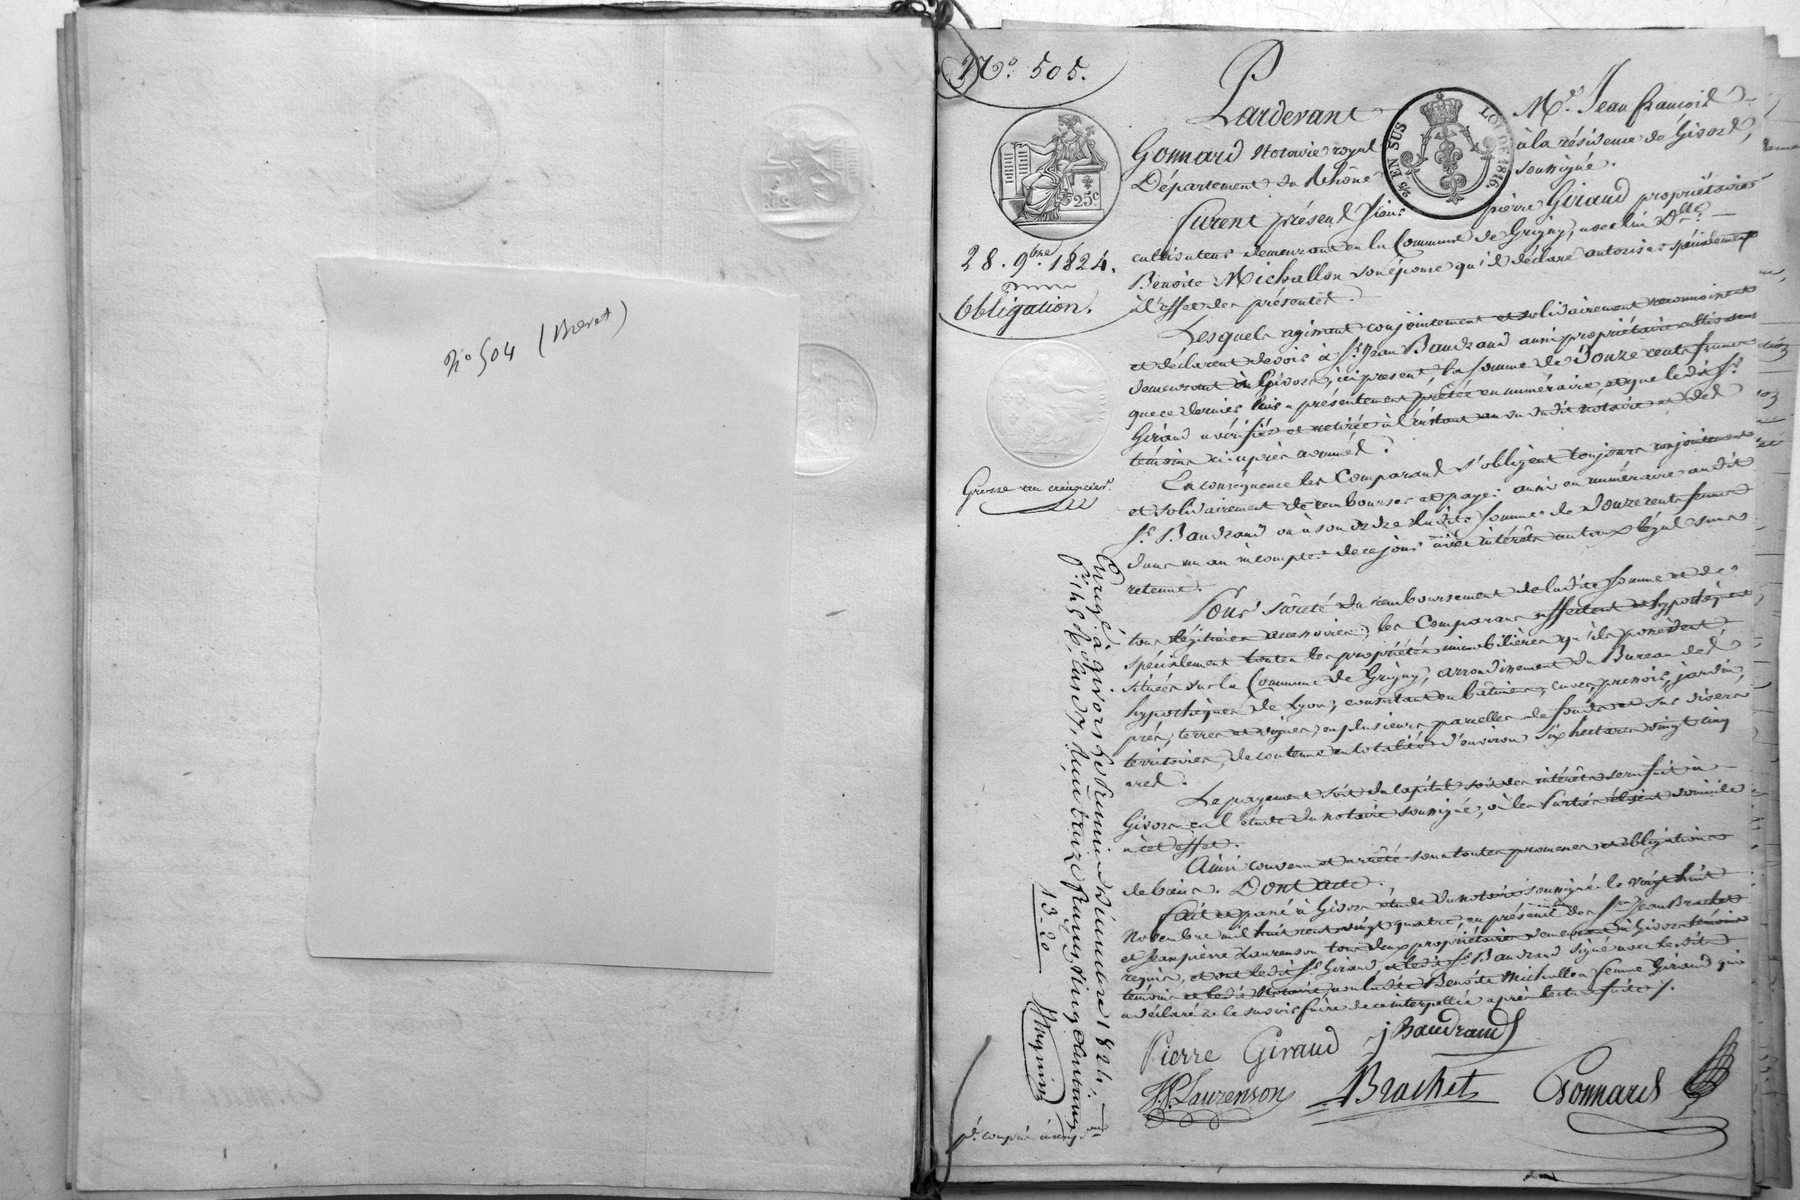 No 504 (Brevet)
No. 505.
28. 9bre 1824.
Obligation.
Grosse au créancier.
25c
2/5 EN SUS LOI DE 1816.
Pardevant Me. Jean françois
Gonnard Notaire royal à la résidence de Givors,
Département du Rhône soussigné.
Furent présens Sieur pierre Giraud propriétaire
cultivateur demeurant en la Commune de Grigny, avec lui Dlle.
Benoite Michallon son épouse qu'il déclare autoriser spécialement
à l'effet des présentes.
Lesquels agissant conjointement et solidairement reconnoissent
et déclarent devoir à Sr. Jean Baudrand aussi propriétaire cultivateur
demeurant à Givors, ici présent, la somme de Douze cents francs
que ce dernier leur a présentement prêtée en numéraire, et que le dit Sr.
Giraud a vérifiée et retirée à l'instant au vu du dit notaire et des
témoins ci après nommés.
En conséquence les Comparans s'obligent toujours conjointement
et solidairement de rembourser et payer aussi en numéraire au dit
Sr. Baudrand ou à son ordre ladite somme de Douze cents francs
dans un an à compter de ce jour avec intérêts au taux légal sans
retenue.
Pour sûreté du remboursement de ladite somme et de
tous légitimes accessoires, les Comparans affectent et hypothèquent
spécialement toutes les propriétés immobilières qu'ils possèdent
situées sur la Commune de Grigny, arrondissement du Bureau des
hypothèques de Lyon, consistant en bâtimens, cuves, pressoir, jardin,
prés, terres et vignes, en plusieurs parcelles de fonds et sur divers
territoires, de contenue en totalité d'environ six hectares vingt cinq
ares.
Le payement soit du capital soit des intérêts sera fait à
Givors en l'étude du notaire soussigné, où les Parties élisent domicile
à cet effet.
Ainsi convenu et arrêté sous toutes promesses et obligations
de biens. Dont acte.
Fait et passé à Givors étude du notaire soussigné le vingt huit
Novembre mil huit cent vingt quatre, en présence des Srs. Jean Brachet
et Jean pierre Laurenson tous deux propriétaires demeurant à Givors témoins
requis, et ont le dit Sr. Giraud, et le dit Sr. Baudrand signé avec les dits
témoins et le dit Notaire, non ladite Benoite Michallon femme Giraud qui
a déclaré ne le savoir faire de ce interpellée après lecture faite.
Pierre Giraud j Baudrand
JP. Laurenson Brachet Gonnard
Enregé. à Givors le premier décembre 1824.
Reçu treize francs vingt centimes
13-20